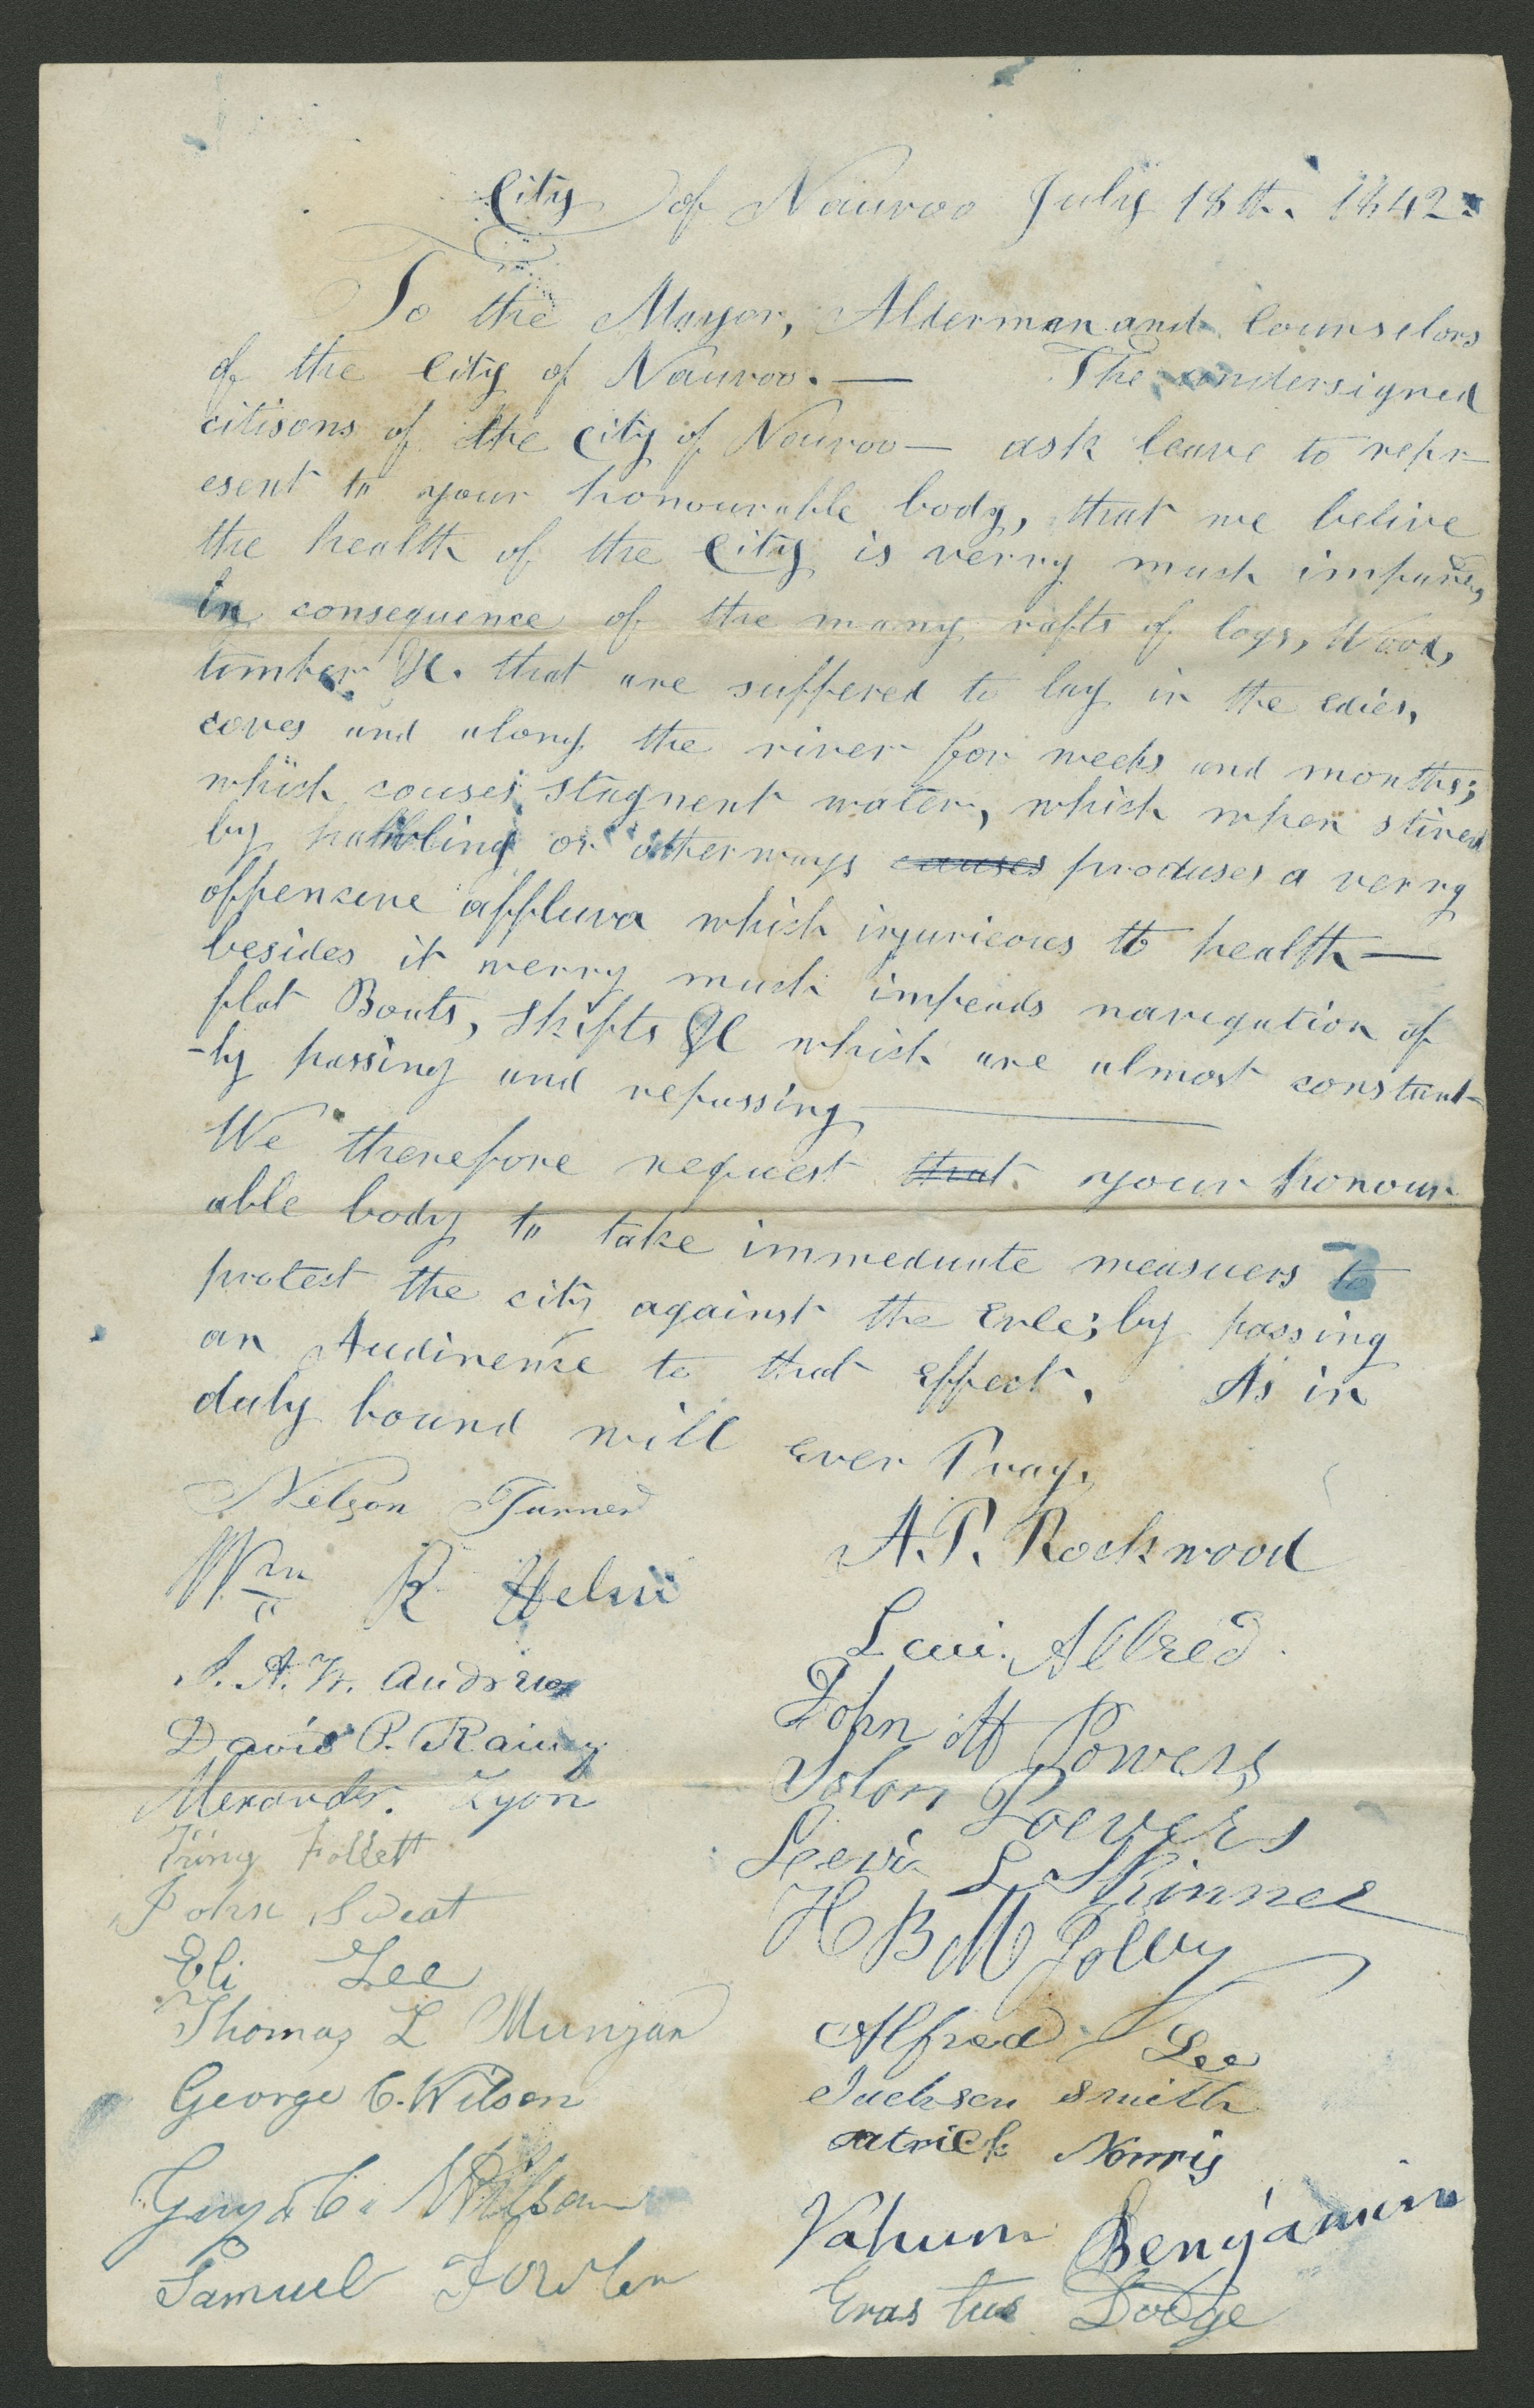 City of Nauvoo July 18th. 1842.
To the Mayor, Alderman and Counselors
of the City of Nauvoo. — The undersigned
citisons of the City of Nauvoo — ask leave to repr-
esent to your honourable body, that we belive
the health of the City is verry much impared,
in consequence of the many rafts of logs, Wood,
timber &c. that are suffered to lay in the edies,
coves and along the river for weeks and months;
which couses stagnent water, which when stired
by padling or otherways causes produses a verry
offencive affluva which injurieous to health —
besides it verry much impeads navigation of
flat Boats, Skifts &c which are almost constant-
-ly passing and repassing
We therefore request that your honour
able body to take immeduate measuers to
protect the city against the Evle; by passing
an Audinence to that effect. As in
duty bound will ever Pray.
Nelson Turner
A. P. Rockwood
Wm R Helm
Levi Allred
S. A. W. Andrew
John M Powers
David P. Rainey
Solon Powers
Alexander Lyon
Lewis L Skinner
King Follett
H B M Jolley
John Sweat
Eli Lee
Alfred Lee
Thomas L Munjar
Jackson Smith
George C. Wilson
Patrick Norris
Guy C. Wilson
Nahum Benjamin
Samuel
Erastus Dodge